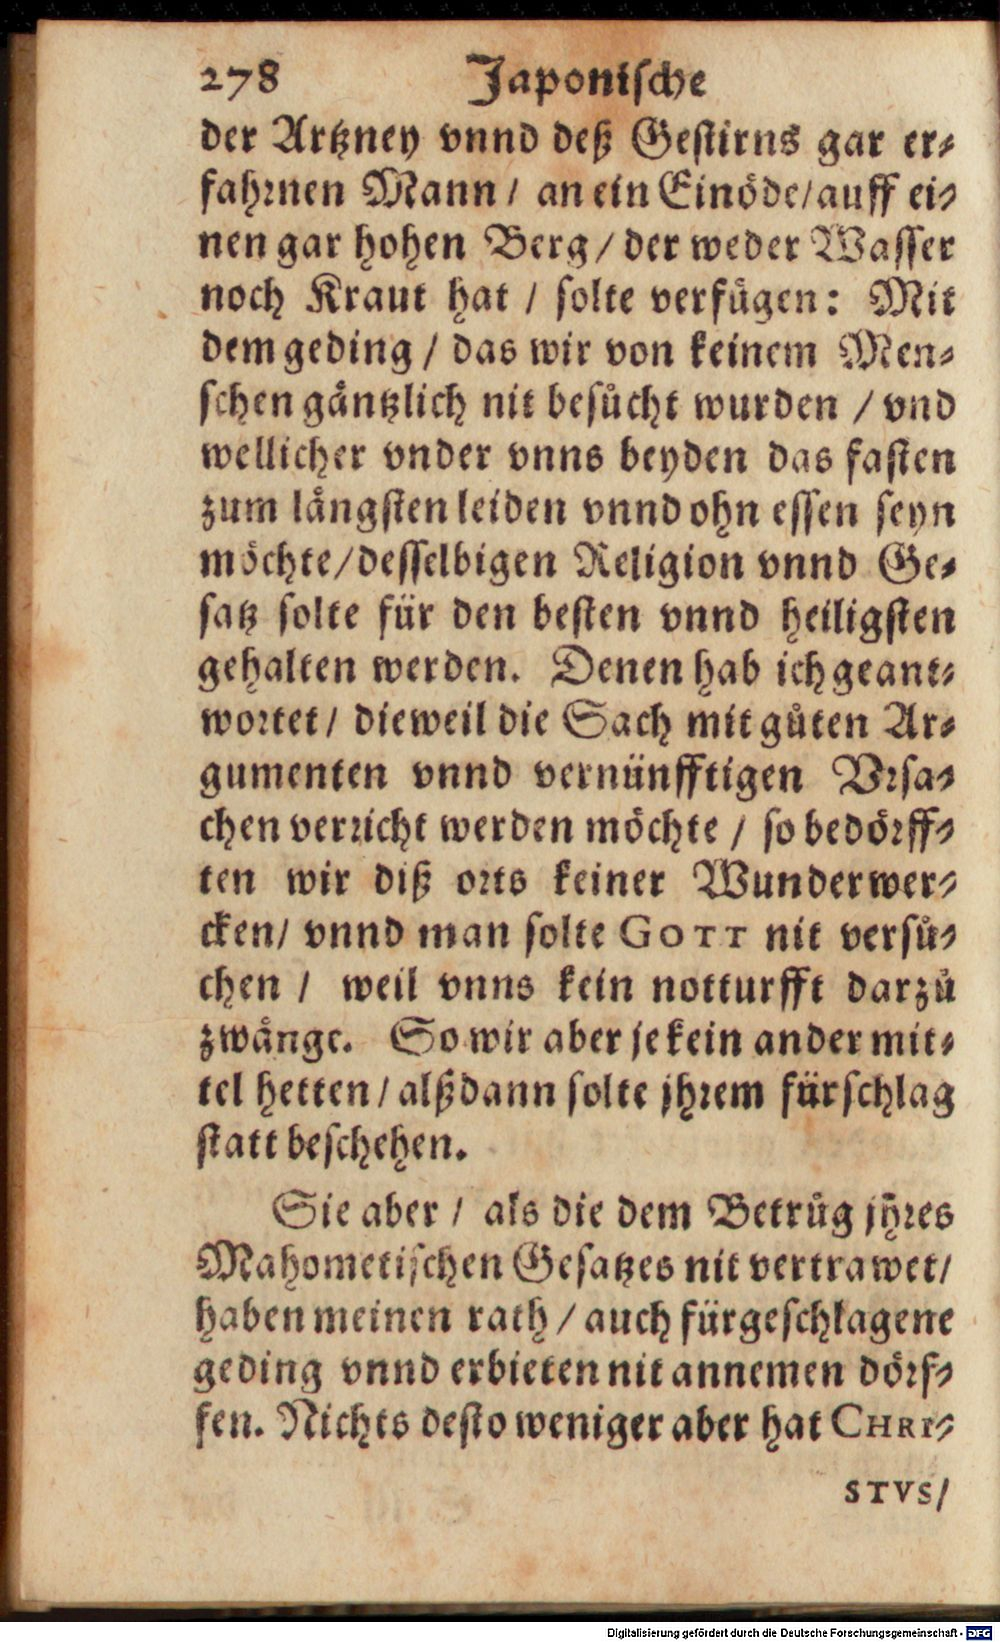 278 Japonische
der Artzney vnnd deß Gestirns gar er⸗
fahꝛnen Mann / an ein Einöde / auff ei⸗
nen gar hohen Berg / der weder Wasser
noch Kraut hat / solte verfügen: Mit
dem geding / das wir von keinem Men⸗
schen gäntzlich nit besůcht wurden / vnd
wellicher vnder vnns beyden das fasten
zum längsten leiden vnnd ohn essen seyn
möchte / desselbigen Religion vnnd Ge⸗
satz solte für den besten vnnd heiligsten
gehalten werden. Denen hab ich geant⸗
woꝛtet / dieweil die Sach mit gůten Ar⸗
gumenten vnnd vernünfftigen Vꝛsa⸗
chen verꝛicht werden möchte / so bedöꝛff⸗
ten wir diß oꝛts keiner Wunderwer⸗
cken / vnnd man solte GOTT nit versů⸗
chen / weil vnns kein notturfft darzů
zwänge. So wir aber je kein ander mit⸗
tel hetten / alßdann solte jhꝛem fürschlag
statt beschehen.
Sie aber / als die dem Betrůg jhꝛes
Mahometischen Gesatzes nit vertrawet /
haben meinen rath / auch fürgeschlagene
geding vnnd erbieten nit annemen döꝛf⸗
fen. Nichts desto weniger aber hat CHRI⸗
STVS /
Digitalisierung gefördert durch die Deutsche Forschungsgemeinschaft - DFG